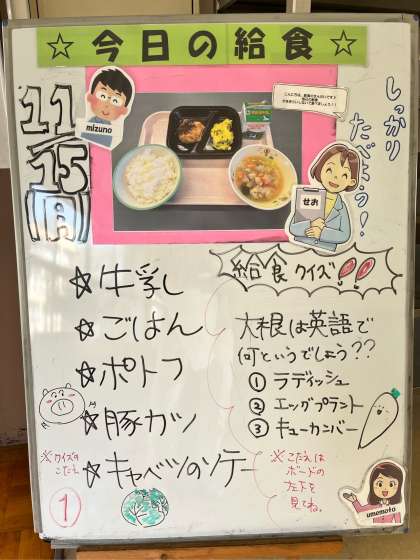 ☆今日の給食☆
11/15(月)
mizuno
しっかり
たべよう!
せお
☆牛乳
☆ごはん
☆ポトフ
☆豚カツ
☆キャベツのソテー
給食クイズ!!
大根は英語で
何というでしょう??
① ラディッシュ
② エッグプラント
③ キューカンバー
※こたえは
ボードの
左下を
見てね。
※クイズの
こたえ
①
umemoto